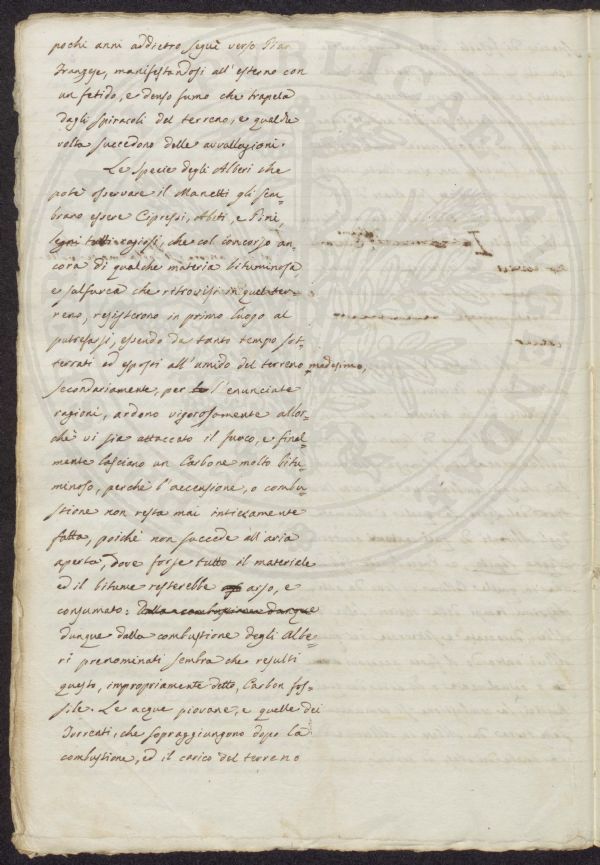 pochi anni addietro seguì verso Pian
Franzese, manifestandosi all'esterno con
un fetido, e denso fumo che trapela
dagli spiracoli del terreno, e qualche
volta succedono delle avvallazioni.
Le specie degli Alberi che
potè osservare il Manetti gli sem-
brano essere Cipressi, Abeti, e Pini,
legni tutti ragiosi, che col concorso an-
cora di qualche materia bituminosa
e sulfurea che ritrovisi in quel ter-
reno, resisterono in primo luogo al
putrefarsi, essendo da tanto tempo sot-
terrati ed esposti all'umido del terreno medesimo,
secondariamente, per le l'enunciate
ragioni, ardono vigorosamente allor-
chè vi sia attaccato il fuoco, e final-
mente lasciano un Carbone molto bitu-
minoso, perchè l'accensione, o combu-
stione non resta mai intieramente
fatta, poichè non succede all'aria
aperta, dove forse tutto il materiale
ed il bitume resterebbe arso, e
consumato: Dalla combustione dunque
dunque dalla combustione degli Albe-
ri prenominati sembra che resulti
questo, impropriamente detto, Carbon fos-
sile. Le acque piovane, e quelle dei
Torrenti, che sopraggiungono dopo la
combustione, ed il carico del terreno